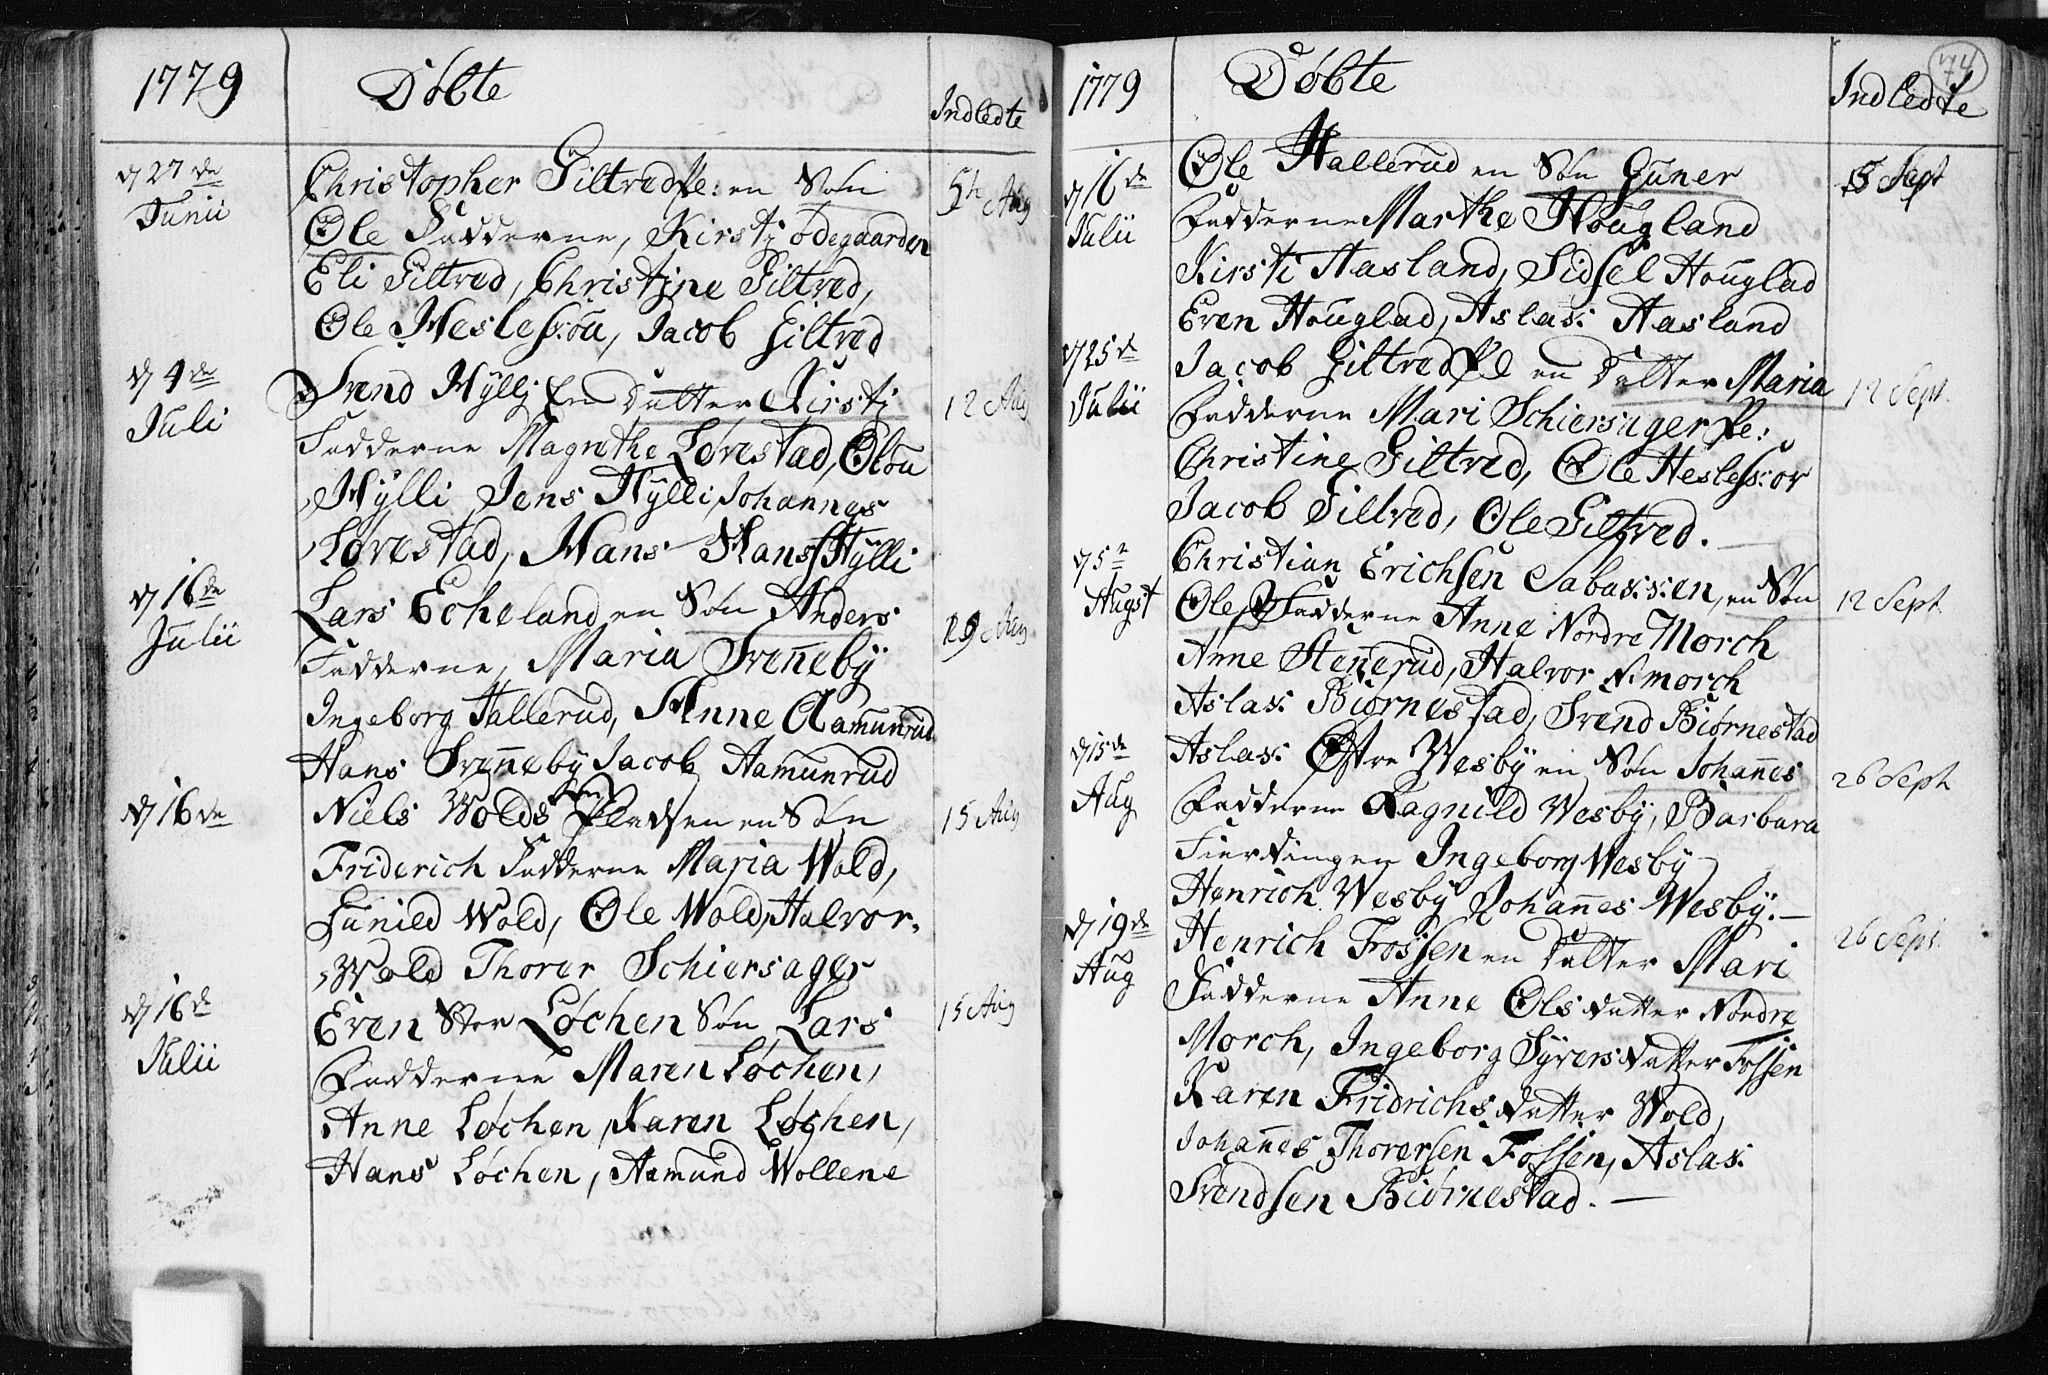 1779 Döbte Indledte
d 27 de Junii Christopher Giltved Pe: en Søn 5te Aug
Ole Fadderne, Kirstj Ødegaarden
Eli Giltved, Christine Giltved,
Ole Heslessou, Jacob Giltved
d 4 de Juli Svend Hyllj En Datter Kirstj 12 Aug
Fadderne Magrethe Lövestad, Olou
Hylli Jens Hylli, Johannes
Lövestad, Hans Hanss: Hylli
d 16 de Julii Lars Echeland en Søn Anders 29 Aug
Fadderne, Maria Svenneby
Ingeborg Hallerud, Anne Aamunrud
Hans Svenneby Jacob Aamunrud
d 16 de Niels Wolds en Søn 15 Aug
Friderich Fadderne Maria Wold,
Gunild Wold, Ole Wold, Halvor
Wold Thorer Schiersager
d 16 de Julii Even Stor Løchen Søn Lars 15 Aug
Fadderne Maren Løchen,
Anne Løchen, Karen Løchen,
Hans Løchen, Aamund Wollene
1779 Döbte Indledte 74
d 16 de Julii Ole Hallerud en Søn Guner 5 Sept
Fadderne Marthe Hougland
Kirsti Hasland, Sidsel Houglad
Even Houglad, Aslax: Hasland
d 25 de Julii Jacob Giltved Pe en Datter Maria 12 Sept.
Fadderne Mari Schiersager Pe:
Christine Giltved, Ole Hesless:or
Jacob Giltved, Ole Giltved.
d 5te Augst Christian Erichsen Sabax:s:en, en Søn 12 Sept.
Ole Fadderne Anne Nordre Morch
Anne Stenerud, Halvor N: morch
Aslax: Biørnestad, Svend Biørnestad
d 15 de Aug Aslax: Østre Wesby en Søn Johannes 26 Sept
Fadderne Ragnild Wesby, Barbara
Fierdingen Ingeborg Wesby
Henrich Wesby Johannes Wesby.
d 19 de Aug Henrich Fossen en Datter Mari 26 Sept.
Fadderne Anne Olsdatter Nordre
Morch, Ingeborg Syversdatter Fossen
Karen Fridrichsdatter Wold,
Johannes Thorersen Fossen, Aslax:
Svendsen Biørnestad.